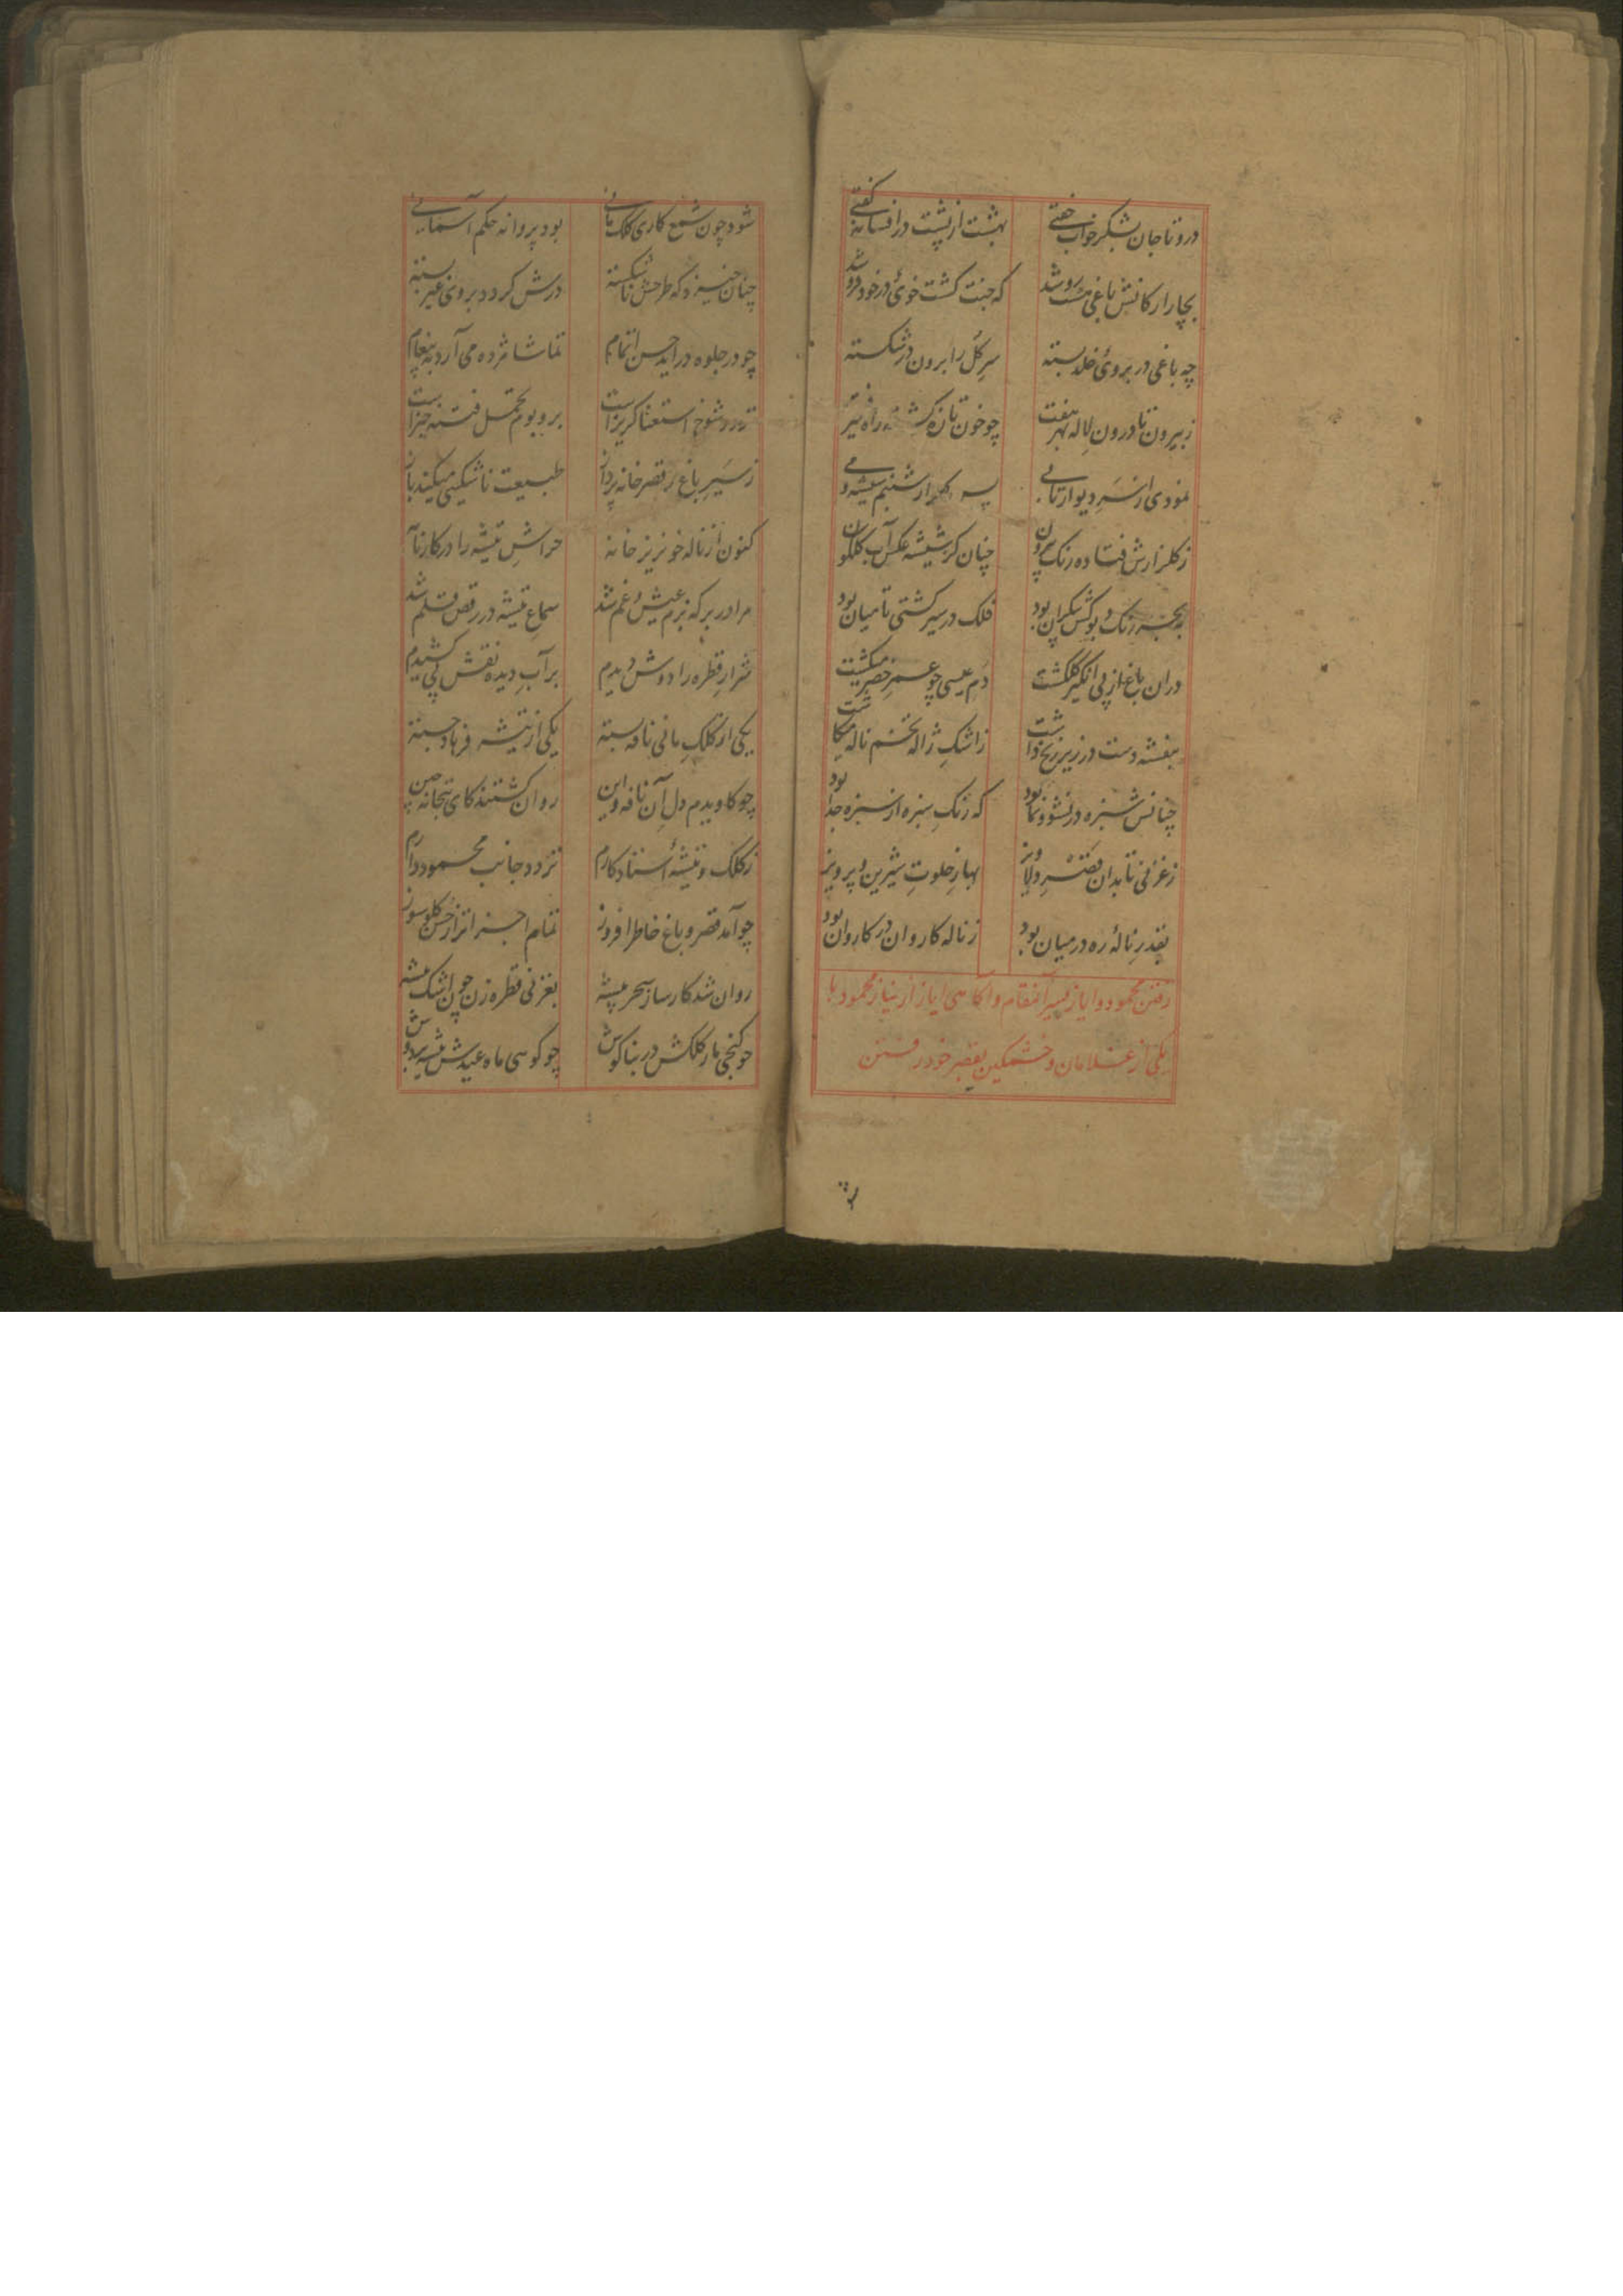 درو تا جان بشکر خواب خفتی بهشت از پشت در افسانه گفتی
بچار ارکانش باغی هشت رو شد که جنت گشت خوی در خود فرو شد
چه باغی در بروی خلد بسته سر گل را برون در شکسته
ز بیرون تا درون لاله بهر هفت چو خون تازه کشته راه
نمودی از سر دیوار تابی شبنم شیشه و می
ز گلزارش فتاده رنگ بیرون چنان کز شیشه عکس آب گلگون
رنگ و بو کش بیکران بود فلک در سیر کشتی تا میان بود
دران باغ از پی انگیز گلگشت دم عیسی چو عمر خضر میگشت
بنفشه دست در زیر زنخ داشت ز اشک ژاله تخم ناله میکاشت
چنانش سبزه در نشو و نما بود که رنگ سبزه از سبزه جدا بود
ز غزنی تا بدان قصر دلاویز بهار خلوت شیرین و پرویز
بقدر ناله ره در میان بود ز ناله کاروان در کاروان بود
رفتن محمود و ایاز بسیر آنمقام و آگاهی ایاز از نیاز محمود با
یکی از غلامان و خشمگین بقصر خود رفتن
شود چون شمع کاری کلک مانی بود پروانه حکم آسمانی
چنان خیزد که طرحش ناشکسته درش گردد بروی غیر بسته
چو در جلوه درآید حسن اتمام تماشا مژده می آرد به پیغام
شوخ استغنا گریزاست بر و بوم تحمل فتنه خیزاست
ز سیر باغ بر قصر خانه پرداز طبیعت ناشکیبی میکند باز
کنون از ناله خونریز خانه خراش تیشه را در کار نآ
مرا در بر که بزم عیش و غم شد سماع تیشه در رقص قلم شد
شرار قطره را دوش دیدم بر آب دیده نقش پی کشیدم
یکی از کلک مانی نافه بسته یکی از تیشه فرهاد جسته
چو کاویدم دل آن نافه و این روان گشتند کای بتخانه چین
ز کلک و تیشه استاد کارم نزد جانب محمود دارم
چو آمد قصر و باغ خاطر افروز تمام اجزا تر از حسن گلوسوز
روان شد کارساز سحر پیشه بغزنی قطره زن چون اشک تیشه
چو کنجی مار کلکش در بناگوش چو گوی ماه عیدش تیشه بر دوش